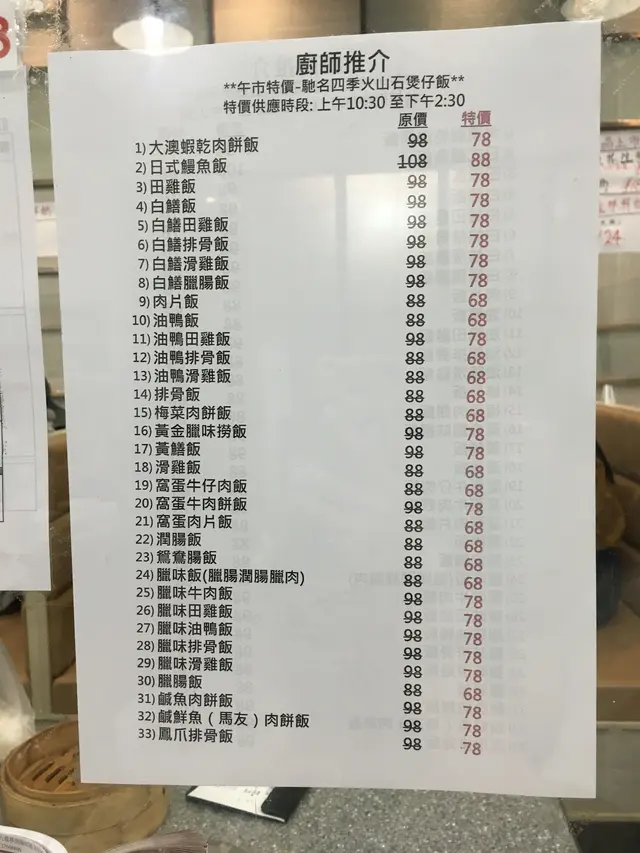 廚師推介
**午市特價-馳名四季火山石煲仔飯**
特價供應時段: 上午10:30 至下午2:30
原價 特價
1) 大澳蝦乾肉餅飯 98 78
2) 日式鰻魚飯 108 88
3) 田雞飯 98 78
4) 白鱔飯 98 78
5) 白鱔田雞飯 98 78
6) 白鱔排骨飯 98 78
7) 白鱔滑雞飯 98 78
8) 白鱔臘腸飯 98 78
9) 肉片飯 88 68
10) 油鴨飯 88 68
11) 油鴨田雞飯 98 78
12) 油鴨排骨飯 88 68
13) 油鴨滑雞飯 88 68
14) 排骨飯 88 68
15) 梅菜肉餅飯 88 68
16) 黃金臘味撈飯 98 78
17) 黃鱔飯 98 78
18) 滑雞飯 88 68
19) 窩蛋牛仔肉飯 88 68
20) 窩蛋牛肉餅飯 98 78
21) 窩蛋肉片飯 88 68
22) 潤腸飯 88 68
23) 鴛鴦腸飯 88 68
24) 臘味飯(臘腸潤腸臘肉) 88 68
25) 臘味牛肉飯 98 78
26) 臘味田雞飯 98 78
27) 臘味油鴨飯 98 78
28) 臘味排骨飯 98 78
29) 臘味滑雞飯 98 78
30) 臘腸飯 88 68
31) 鹹魚肉餅飯 98 78
32) 鹹鮮魚（馬友）肉餅飯 98 78
33) 鳳爪排骨飯 98 78